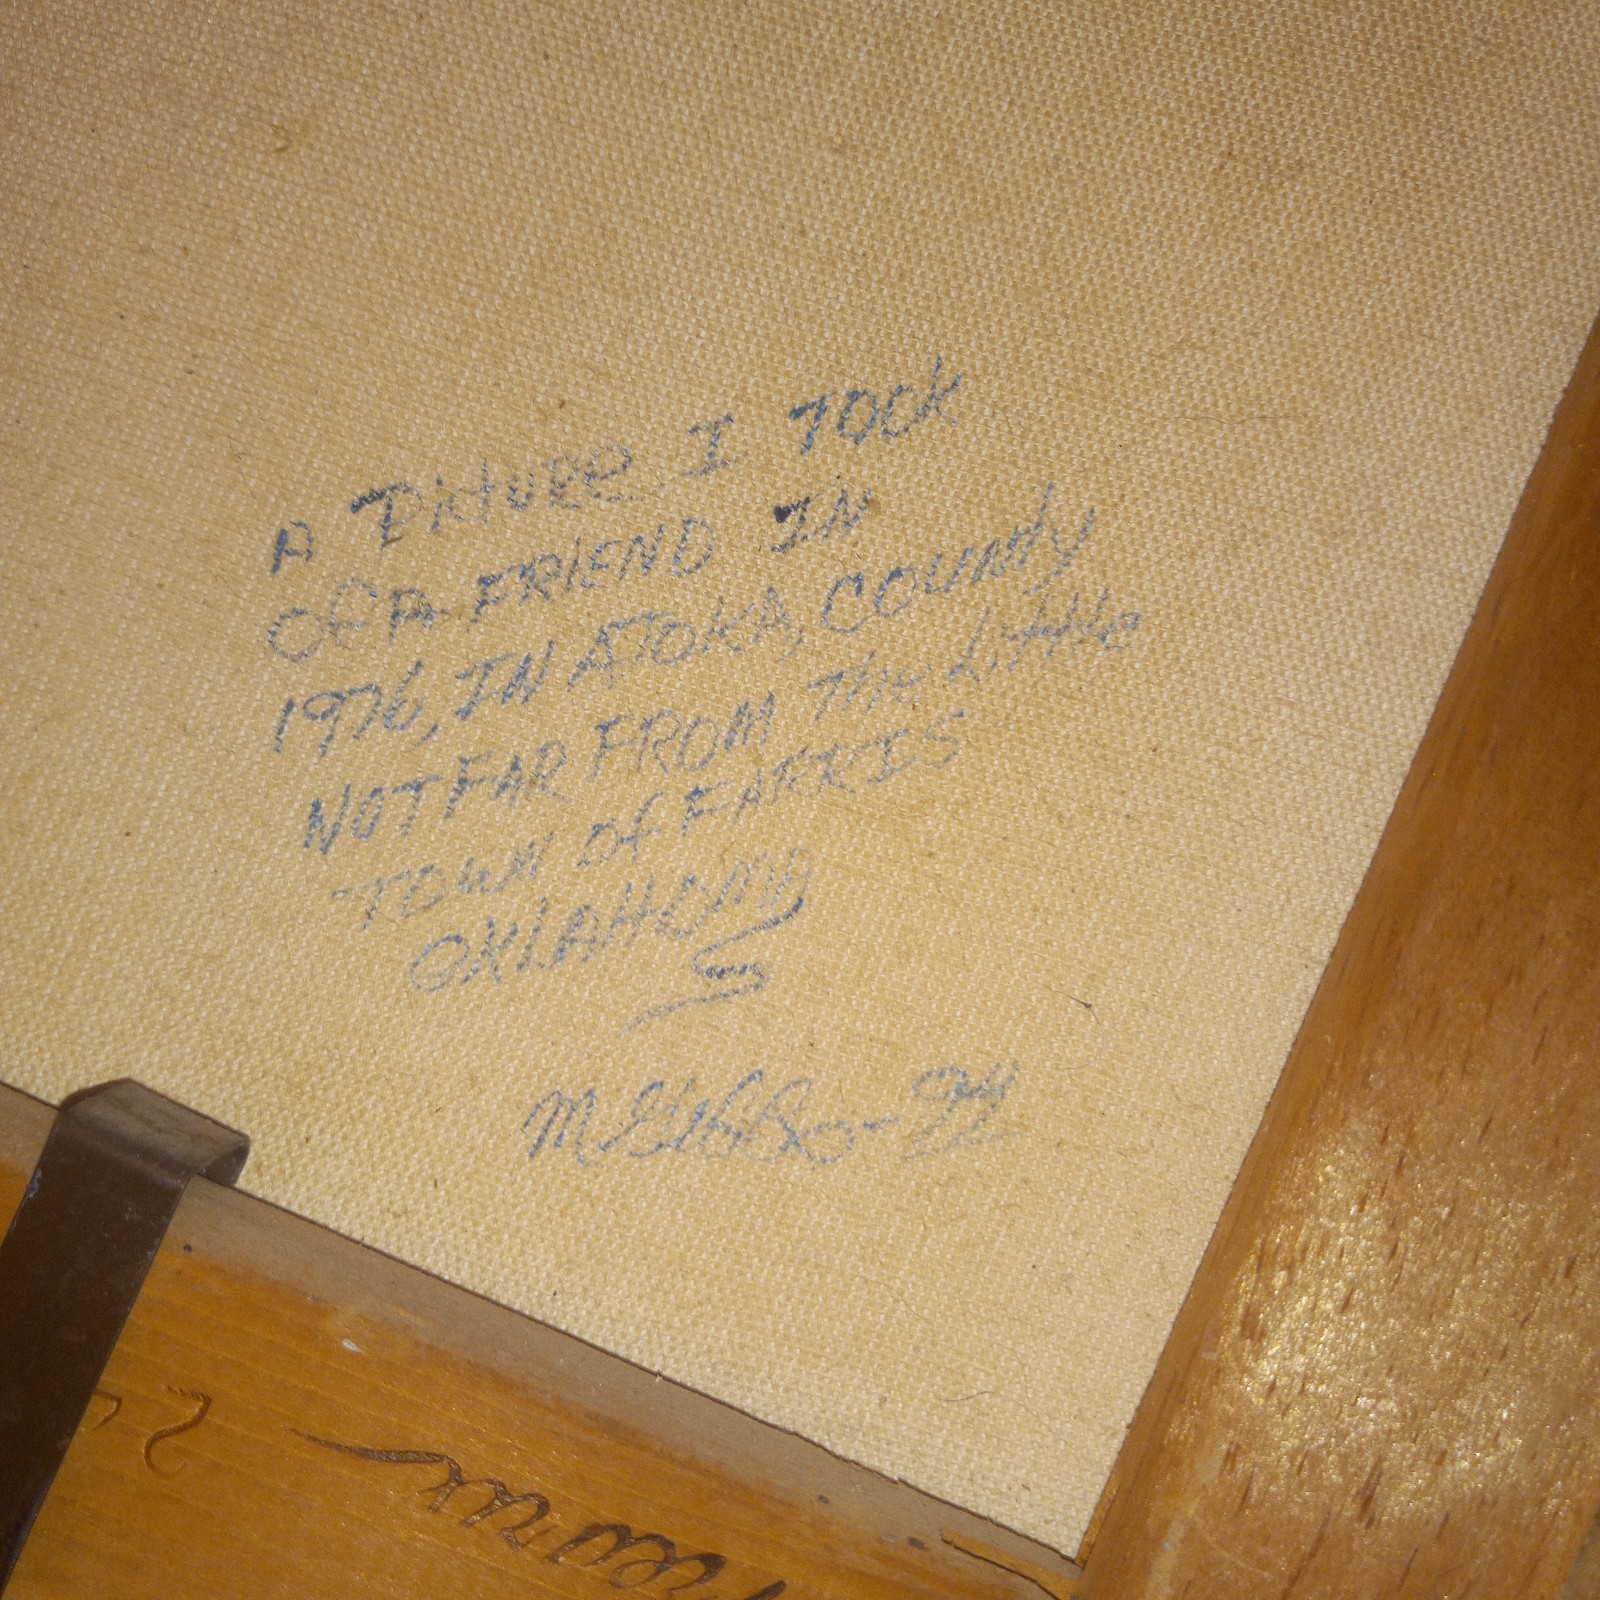 A PictURe I TOOK
OF A FRIEND IN
1976, IN ATOKA, COUNty
NOT FAR FROM The Little
TOWN Of FARRIS
OKLAHOMA